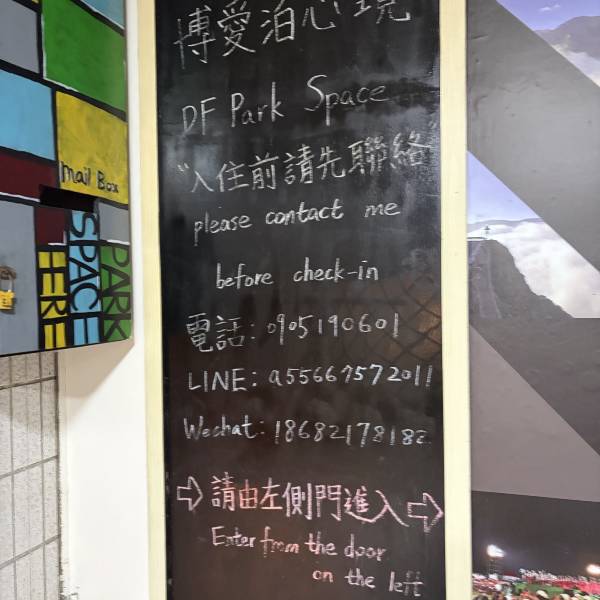 博愛泊心境
DF Park Space
"入住前請先聯絡
please contact me
before check-in
電話：0905190601
LINE: a55667572011
Wechat: 18682178182
⇨ 請由左側門進入 ⇨
Enter from the door
on the left
mail Box
PARK
SPACE
HERE